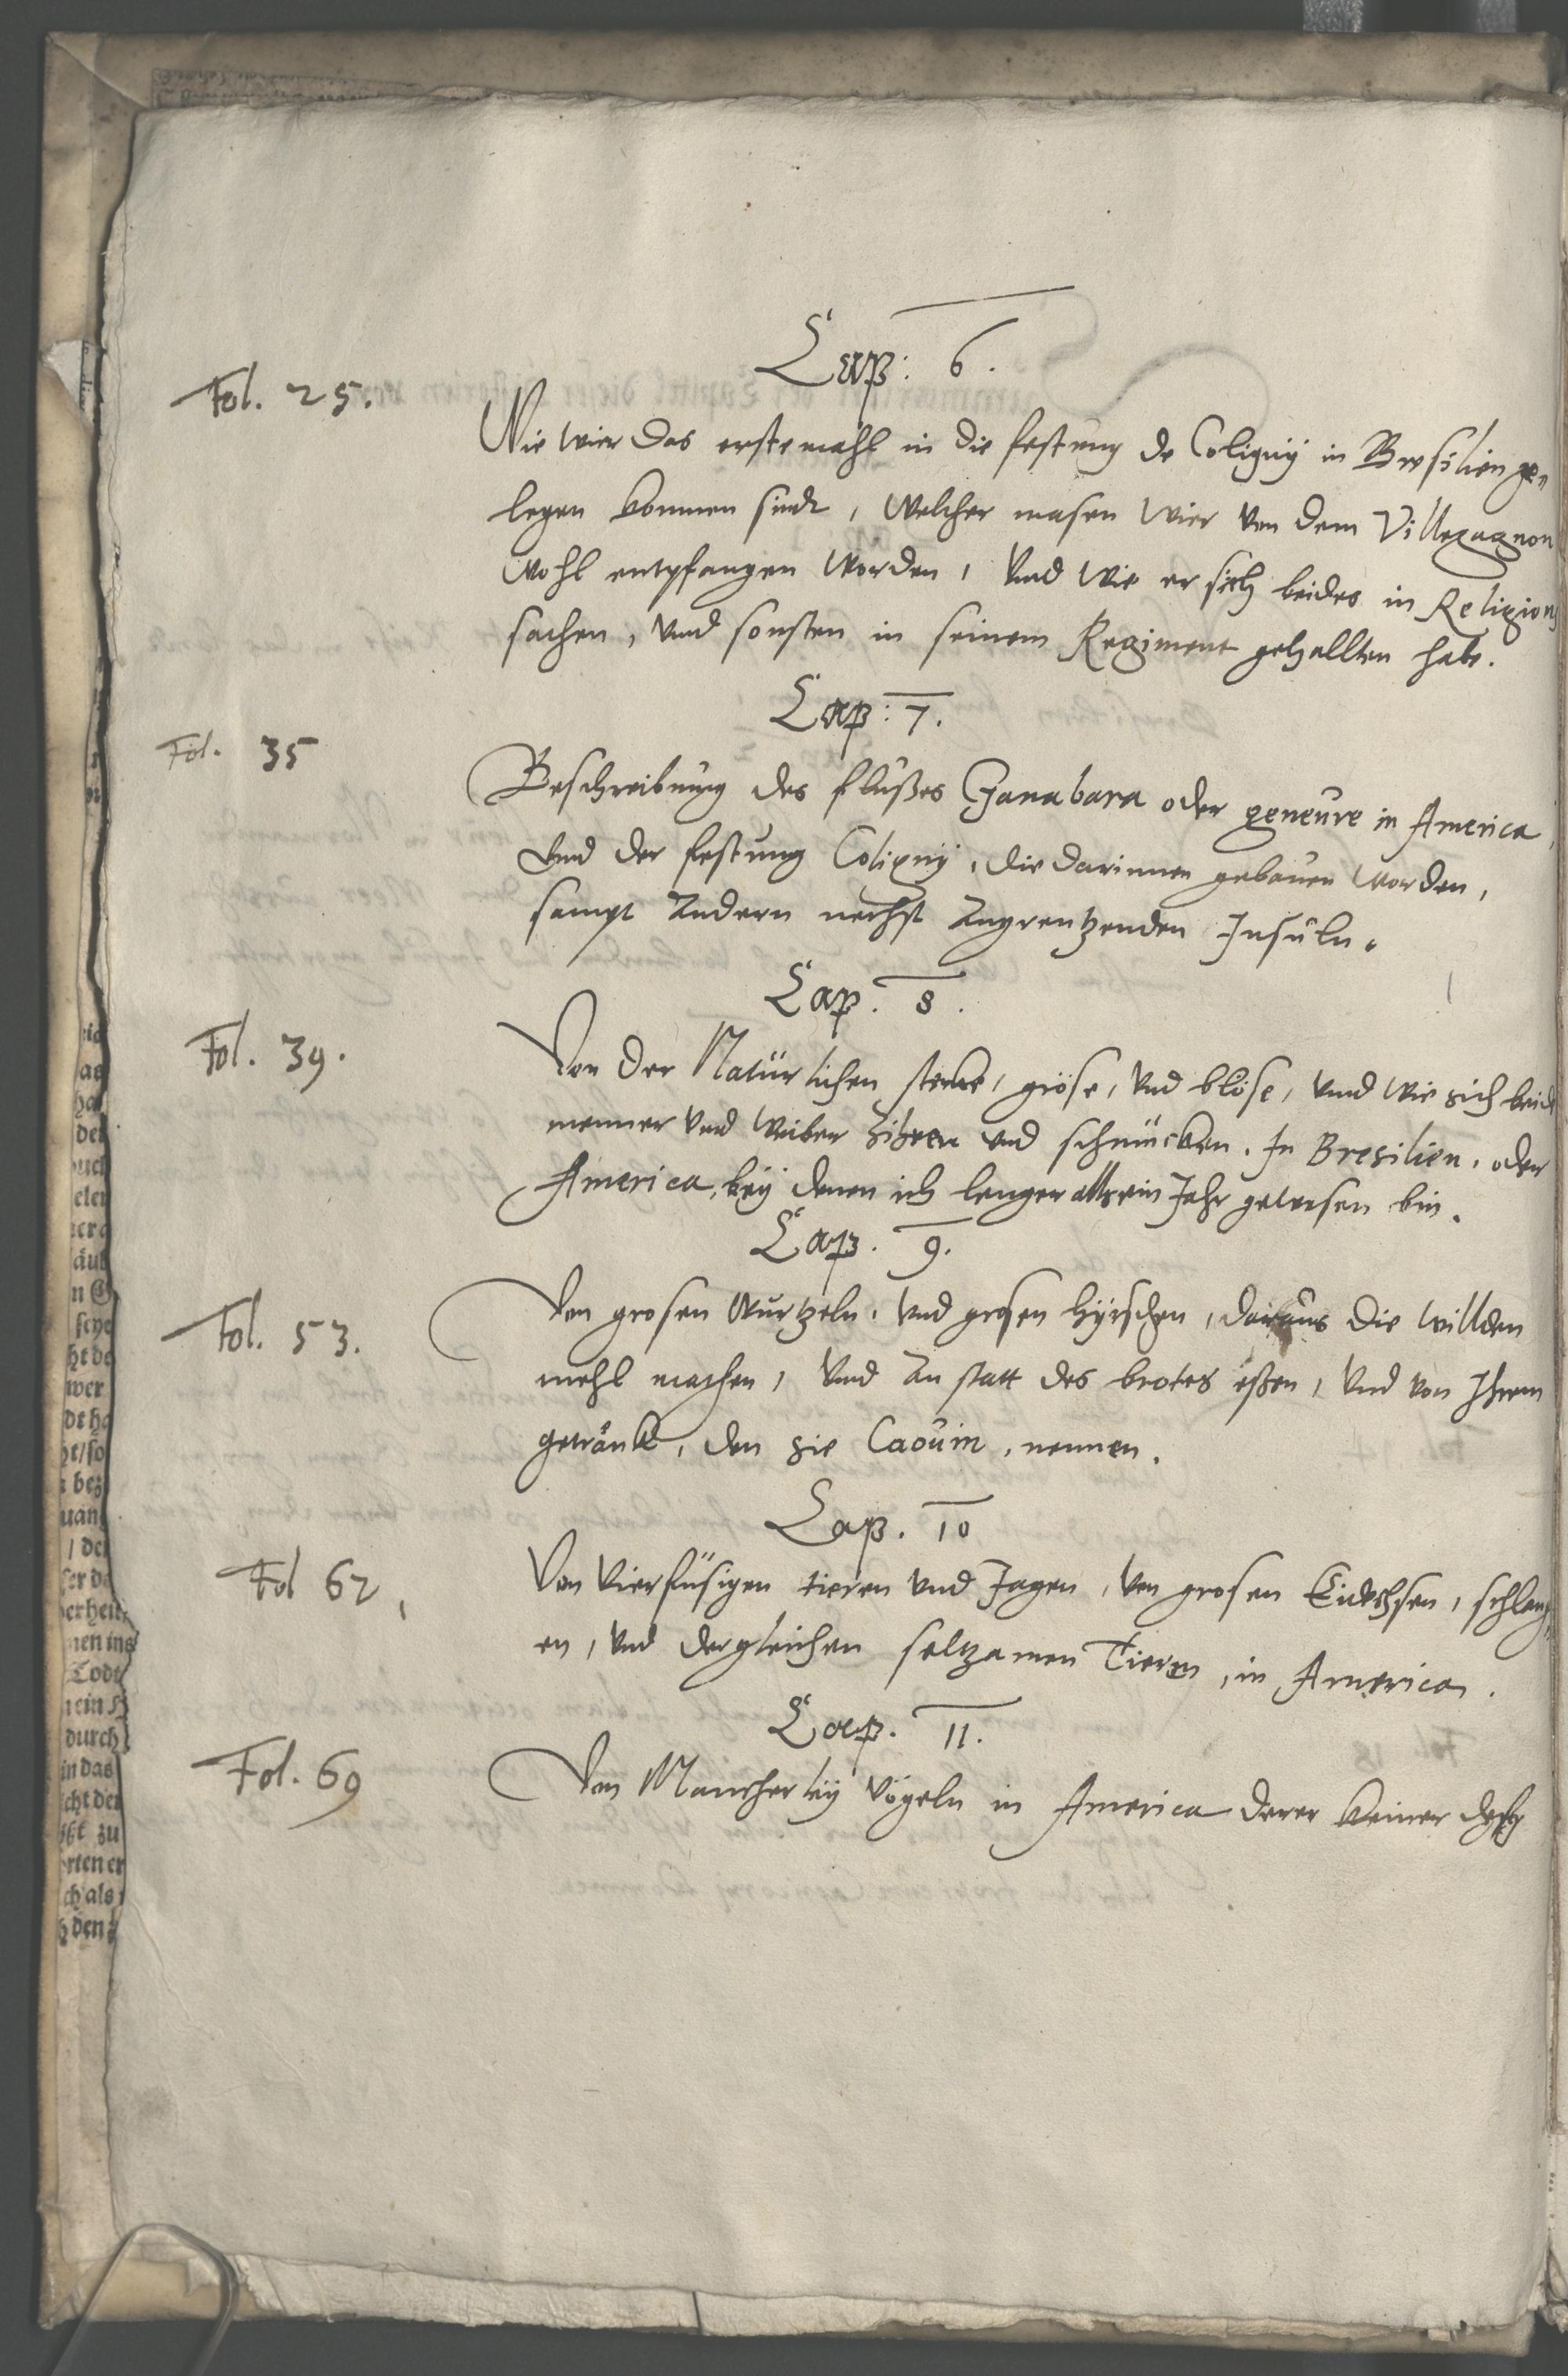 Cap: 6.
Fol. 25.
Wie wier das erstemahl in die festung de Coligny in Bresilien ge„
legen kommen sindt, Welcher masen wier von dem Villegagnon
wohl entpfangen worden, Vnd wie er sich beides in Religions
sachen, vnd sonsten in seinem Regiment gehallten habe.
Cap: 7.
Fol. 35
Beschreibung des flußes Ganabara oder geneure in America,
Vnd der festung Coligny, die darinnen gebauen worden,
sampt Andern nechst Angrentzenden Insuln.
Cap. 8.
Fol. 39.
Von der Natürlichen sterke, gröse, vnd blöse, vnnd wie sich beide
menner vnd weiber ziehren vnd schmücken. In Bresilien, oder
America, bey denen ich lenger alls ein Jahr gewesen bin.
Cap. 9.
Fol. 53.
Von grosen Wurtzeln, vnd grosen hyrschen, daraus die willden
mehl machen, vnd An statt des brotes eßen, vnd von Ihrem
getränk, den sie Caouin, nennen.
Cap. 10
Fol 62,
Von vierfüsigen tieren vnd Jagen, von grosen Eidechsen, schlang„
en, vnd dergleichen seltzamen Tieren, in America.
Cap. 11.
Fol. 69
Von Mancherley vögeln in America derer keiner